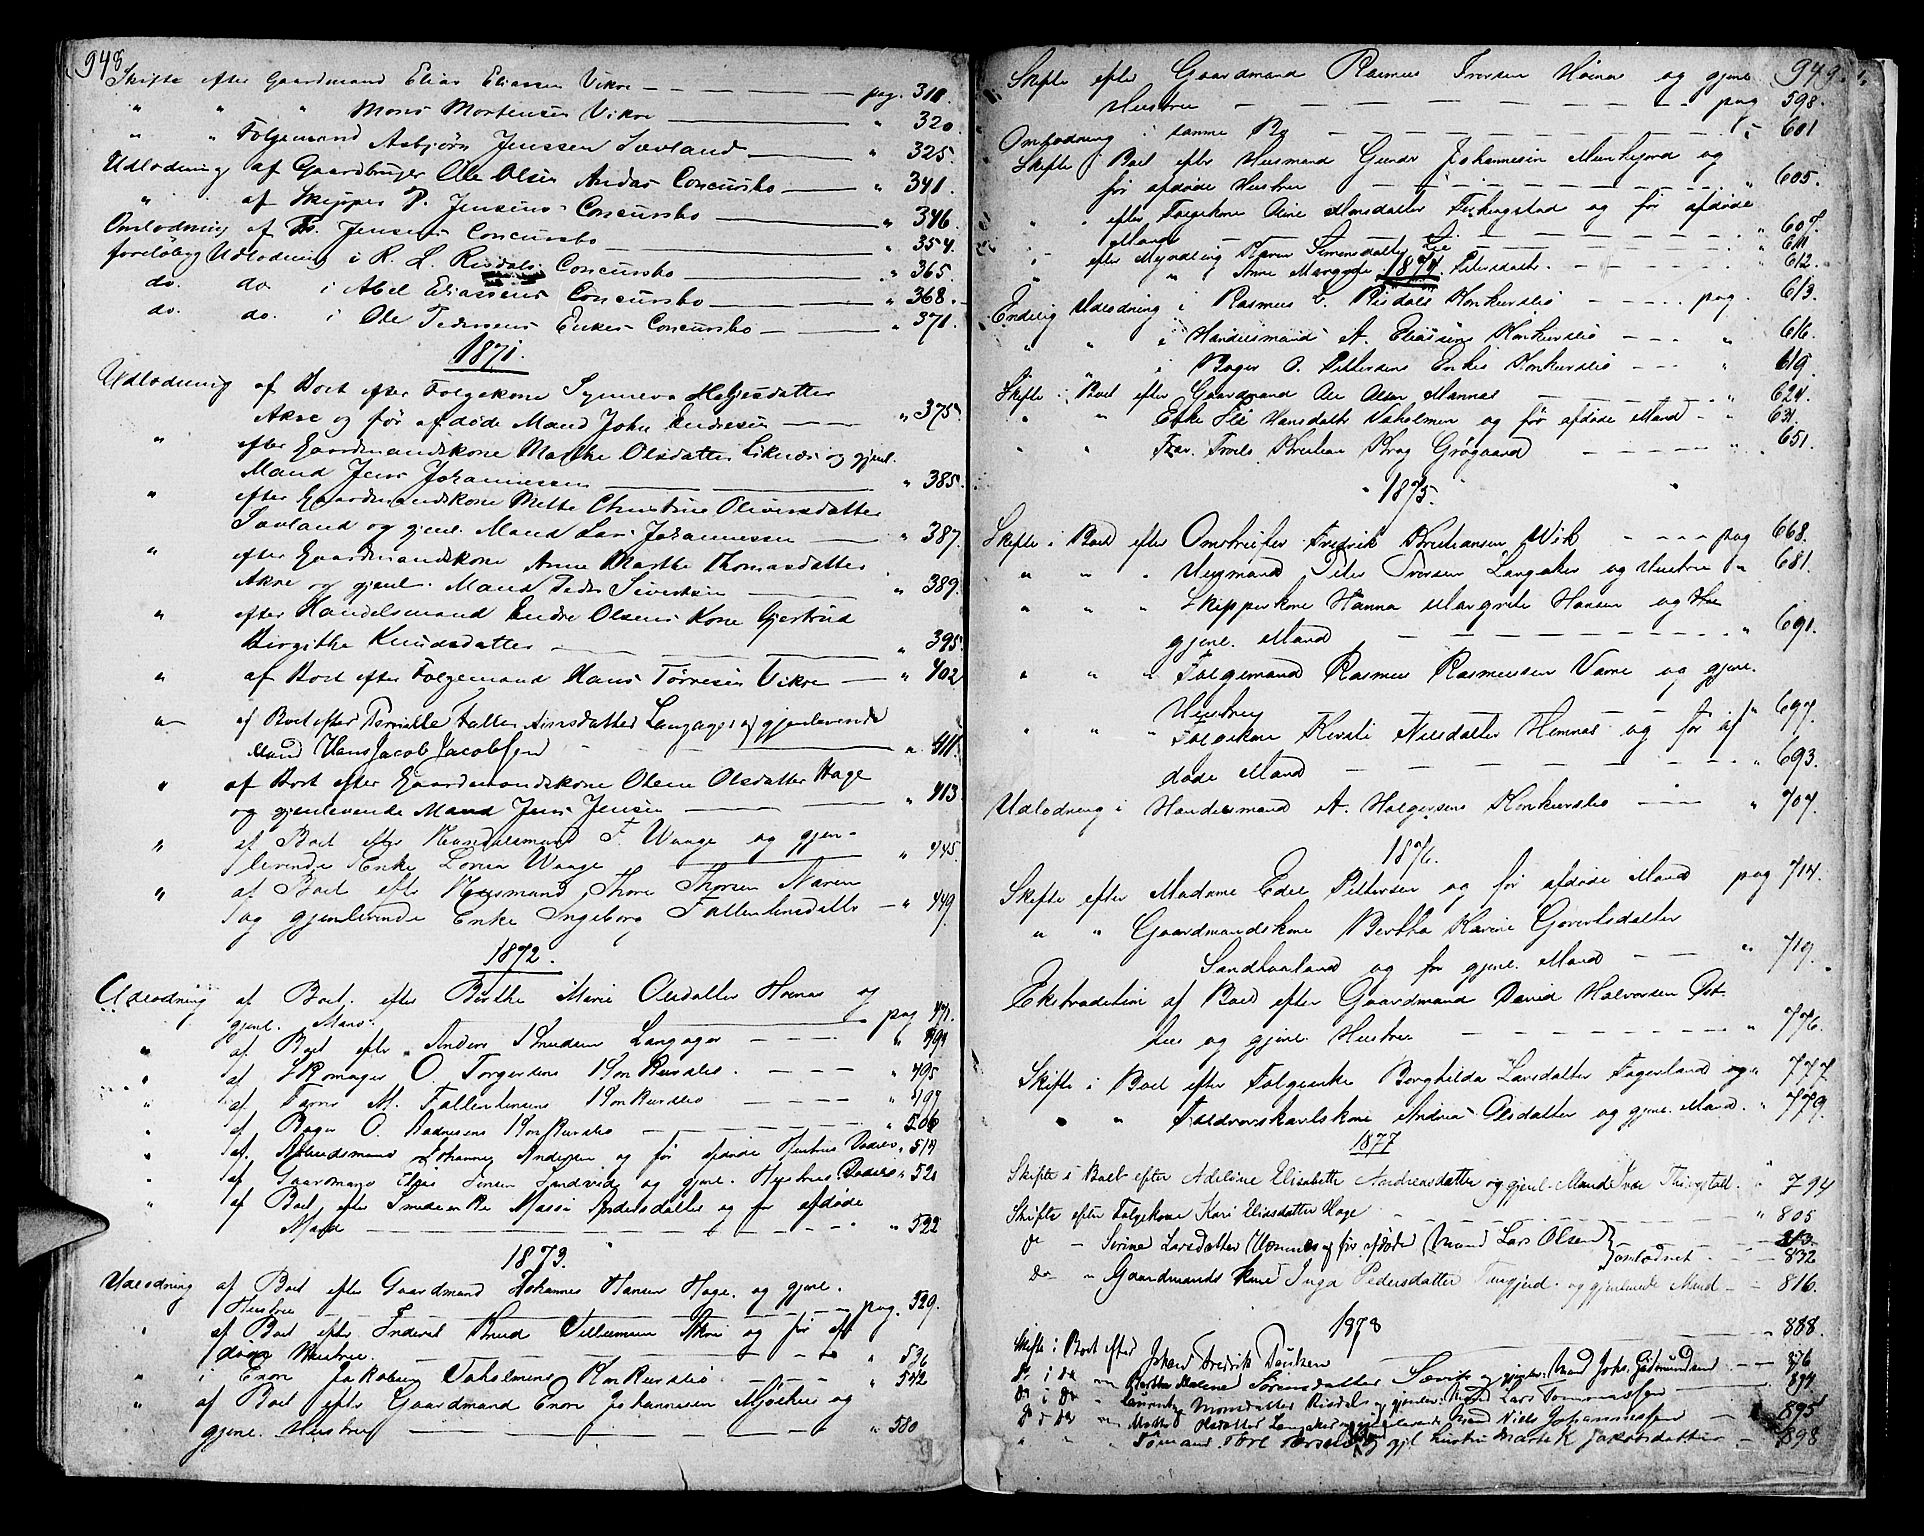 948
Skifte efter Gaardmand Elias Eliassen Vikre — pag. 318.
" " " Mons Mortensen Vikre — " 320.
" " Folgemand Asbjørn Jenssen Sævland — " 325.
Udlodning af Gaardbruger Ole Olsen Andas Concursbo — " 341.
" af Skipper P. Jensens Concursbo — " 346.
Omlodning af Fr. Jensens Concursbo — " 354.
foreløbig Udlodning i R. L. Risdals Concursbo — " 365
do. do i Abel Eliassens Concursbo — " 368.
do. do. i Ole Pedersens Enkes Concursbo — " 371.
1871.
Udlodning af Boet efter Folgekone Synneva Helgesdatter
Akre og før afdøde Mand John Endresen — " 375.
" efter Gaardmandskone Marthe Olsdatter Liknæs og gjenl.
Mand Jens Johannessen — " 385.
" efter Gaardmandskone Mette Christine Oliversdatter
Sævland og gjenl. Mand Lars Johannessen — " 387.
" efter Gaardmandskone Anne Marthe Thomasdatter
Akre og gjenl. Mand Peder Sivertsen — " 389.
" efter Handelsmand Endre Olsens Kone Gjertrud
Birgithe Knudsdatter — " 395.
" af Boet efter Folgemand Hans Tørresen Vikre — " 402
" af Boet efter Pernille Fallentinsdatter Langager og gjenlevende
Mand Hans Jacob Jacobsen — " 411.
" af Boet efter Gaardmandskone Olene Olsdatter Hage
og gjenlevende Mand Jens Jensen — " 413.
" af Boet efter Handelsmand F. Waage og gjen-
levende Enke Lovise Waage — " 445
" af Boet efter Husmand Thore Thoresen Naven
og gjenlevende Enke Ingeborg Fallentinsdatter — " 449.
1872.
Udlodning af Boet efter Berthe Marie Olsdatter Hemnæs og
gjenl. Mand. — pag 471.
" af Boet efter Anders Knudsen Langager — " 491
" af Skomager O. Torgersens Konkursbo. — " 495
" af Farver M. Fallentinsens Konkursbo — " 497
" af Bager O. Aadnesens Konkursbo — " 506
" af Arbeidsmand Johannes Andersen og før afdøde Hustrus Boe " 514
" af Gaardmand Elias Jensen Sandvik og gjenl. Hustrues Boe " 521
" af Boet efter Smedenke Massi Andersdatter og før afdøde
Mand — " 522
1873.
Udlodning af Boet efter Gaardmand Johannes Hansen Hage og gjenl.
Hustru — pag. 529.
" af Boet efter Inderst Knud Villumsen Akre og før af-
døde Hustru. — " 536
" i Enon Jakobsen Vaholmens Konkursbo — " 542
" af Boet efter Gaardmand Enon Johannesen Mjølhus og
gjenl. Hustru — " 580
949.
Skifte efter Gaardmand Rasmus Iversen Høines og gjenl.
Hustru — pag 598.
Omlodning i samme Bo — " 601
Skifte i Boet efter Husmand Gunder Johannesen Munkejord og
før afdøde Hustru — " 605.
" " efter Folgekone Aine Monsdatter Ferkingstad og før afdøde
Mand — " 607.
" efter Myndling Karen Simonsdatter Lie — " 611
" " Anne Margrete Petersdatter — " 612.
1874.
Endelig Udlodning i Rasmus L. Risdals Konkursbo — pag. 613.
" " i Handelsmand A. Eliassens Konkursbo — " 616.
" " i Bager O. Pettersens Enkes Konkursbo — " 619.
Skifte i Boet efter Gaardmand Ole Olsen Mannes — " 624.
" " Enke Ilse Hansdatter Vaholmen og før afdøde Mand — " 631.
" " Frøk. Troels Kristian Krag Grøgaard — " 651.
1875.
Skifte i Boet efter Omstreifer Fredrik Kristiansen Wik — pag 668.
" " " Husmand Peter Iversen Langaker og Hustru " 681.
" " " Skipperkone Hanna Margrete Hansen og
gjenl. Mand — " 691.
" " " Folgemand Rasmus Rasmussen Varne og gjenl.
Hustru — " 697.
" " " Folgekone Kirsti Nilsdatter Hemnes og før af-
døde Mand — " 693.
Udlodning i Handelsmand A. Holgersens Konkursbo — " 707.
1876.
Skifte efter Madame Edel Pettersen og før afdøde Mand pag 714.
" " Gaardmandskone Bertha Karine Govertsdatter
Sandhaaland og før gjenl. Mand — " 719.
Ekstradition af Boet efter Gaardmand David Halvorsen Øst-
hus og gjenl. Hustru — " 776.
Skifte i Boet efter Folgeenke Borghilda Larsdatter Fagerland og " 777.
" " Toldrorskarlskone Andrea Olsdatter og gjenl. Mand. " 779.
1877
Skifte i Boet efter Adeline Elisabeth Andreasdatter og gjenl. Mand Ivar " 794
Skifte efter Folgekone Kari Eliasdatter Hage — " 805
do — Serine Larsdatter Hemnes og før afdøde Mand Lars Olsen } omlodnet — 813 832
do " Gaardmands kone Inga Pedersdatter og gjenlevende Mand — 816.
1878
Skifte i Boet efter Johan Fredrik Poulsen — " 888.
do i do " Bertha Malene Sørensdatter Sævik og gjenlev. Mand Johs. Gudmundsen — 876
do i do " Monsdatter Risdal og gjenlev. Mand Lars Tommassen — 894
do i do " Marthe Olsdatter Langaker og gjenlevende Mand Niels Johannessen — 895
" " Tore og gjl hustru Marte K Jakobsdatter — 898